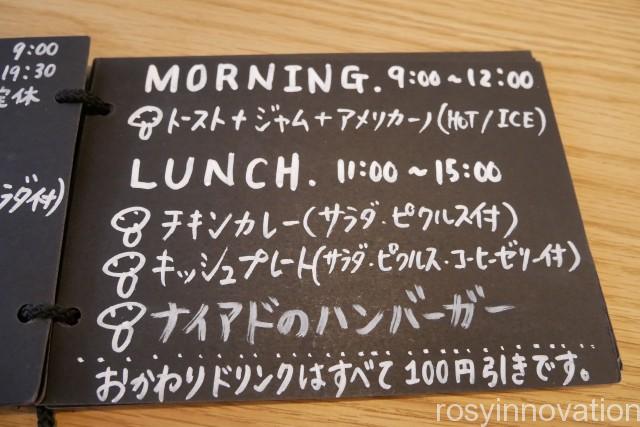 9:00
19:30
定休
ラダ付)
MORNING. 9:00~12:00
トースト+ジャム+アメリカーノ(HOT/ICE)
LUNCH. 11:00~15:00
チキンカレー(サラダ・ピクルス付)
キッシュプレート(サラダ・ピクルス・コーヒーゼリー付)
ナイアドのハンバーガー
おかわりドリンクはすべて100円引きです。
rosyinnovation